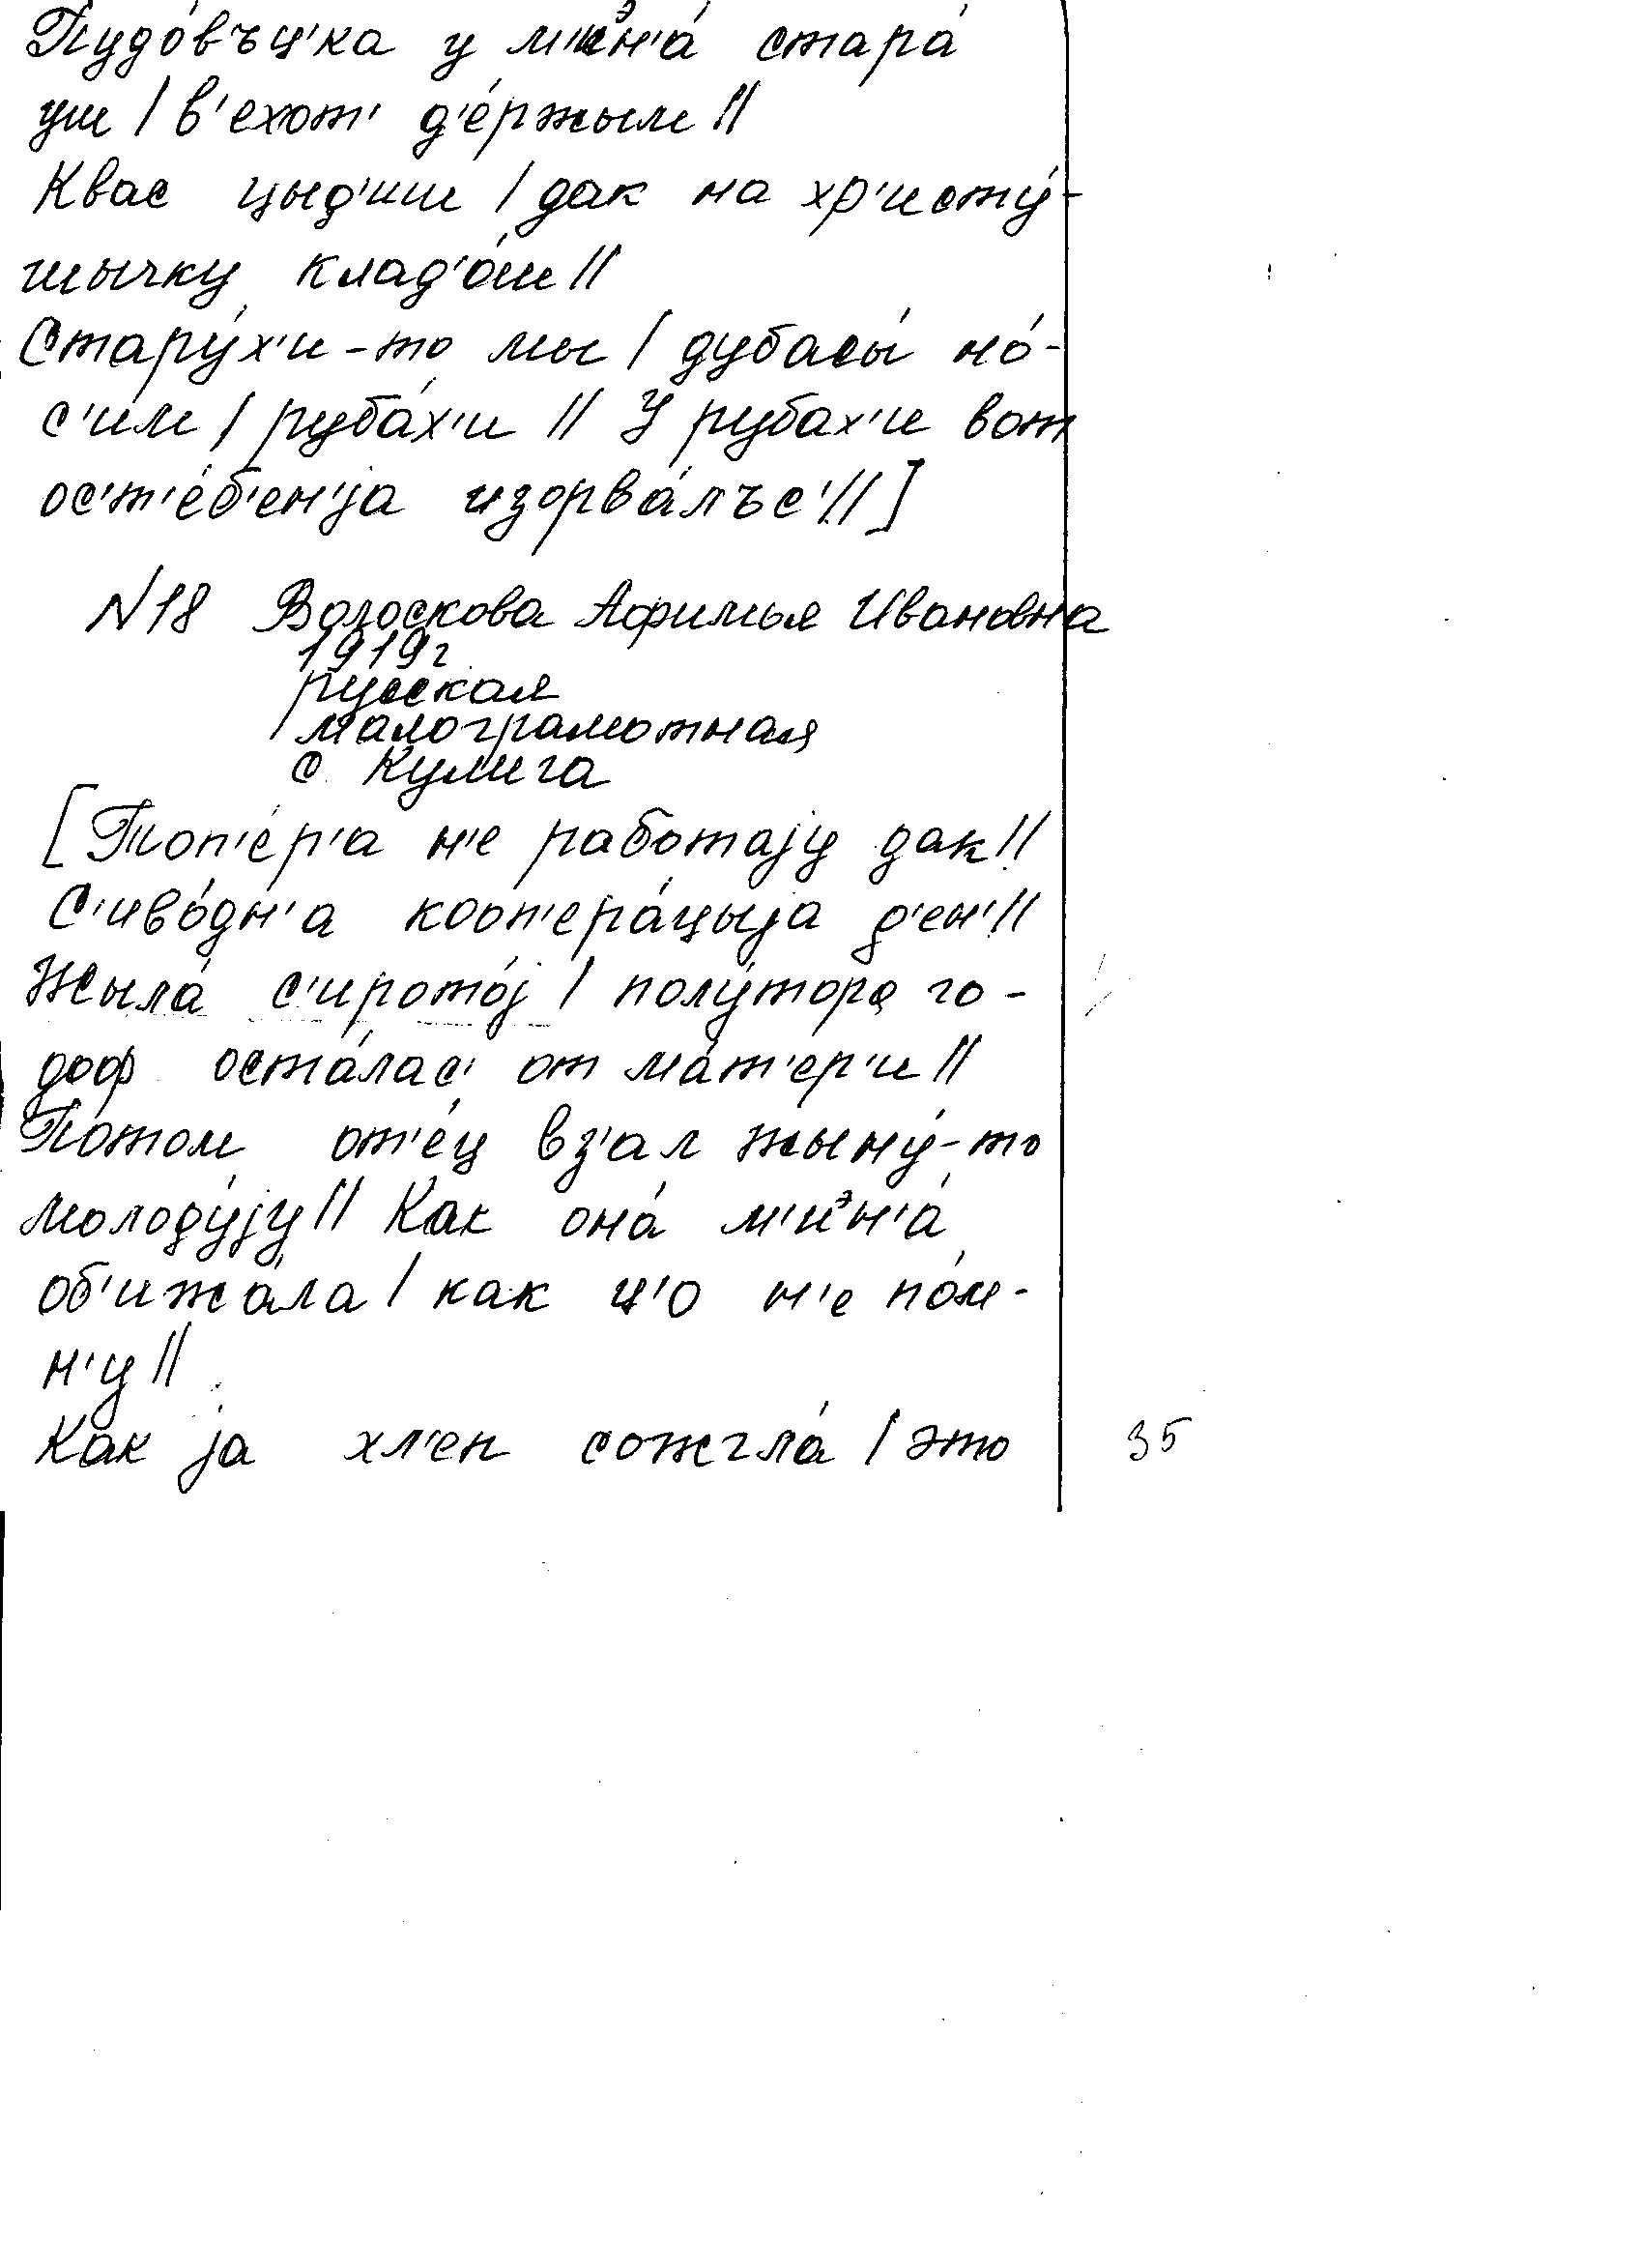 Пудо́въц'ка у м'иᵊн'а́ стара́
уш / в'ехот' д'е́ржым //
Квас цыд'иш / дак на хр'исту́-
шычку клад'о́ш //
Стару́х'и-то мы / дубасы́ но́-
с'им / руба́х'и // У рубах'и вот
ос'т'е́б'ен'jа изорва́лъс' // ]
N18 Волоскова Афимья Ивановна
1919г
русская
малограмотная
с. Кулига
[Топ'е́р'а н'е работаjу дак //
С'иво́дн'а кооп'ера́цыjа д'ен' //
Жыла́ с'ирото́j / полу́тора го-
доф оста́лас' от ма́т'ер'и //
Потом от'е́ц вз'ал жыну́-то
молоду́jу // Как она́ м'иᵊн'а́
об'ижа́ла / как ц'о н'е по́м-
н'у //
Как jа хл'еп сожгла́ / это
35